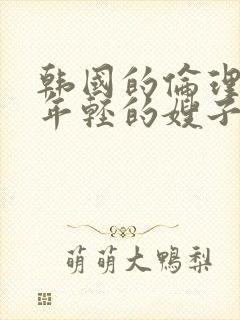 韩国的倫理
年轻的嫂子
萌萌大鸭梨